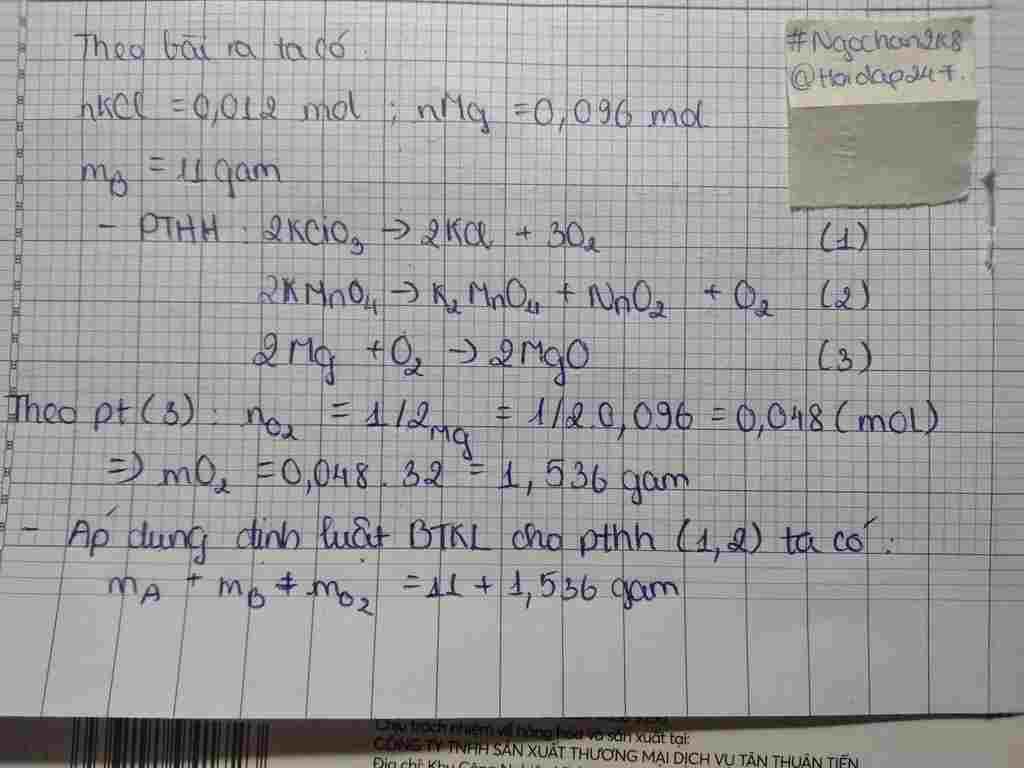 Theo bài ra ta có:
#Ngochan2k8
@Hoidap247.
nKCl = 0,012 mol ; nMg = 0,096 mol
mB = 11 gam
- PTHH: 2KClO3 → 2KCl + 3O2 (1)
2KMnO4 → K2MnO4 + NnO2 + O2 (2)
2Mg + O2 → 2MgO (3)
Theo pt(3): nO2 = 1/2Mg = 1/2.0,096 = 0,048 (mol)
=> mO2 = 0,048 . 32 = 1,536 gam
- Áp dụng định luật BTKL cho pthh (1,2) ta có:
mA + mB + mO2 = 11 + 1,536 gam
Chịu trách nhiệm về hàng hóa và sản xuất tại:
CÔNG TY TNHH SẢN XUẤT THƯƠNG MẠI DỊCH VỤ TÂN THUẬN TIẾN
Địa chỉ: Khu Công